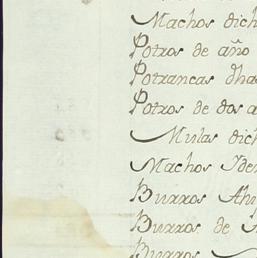 Machos dich
Potros de año
Potrancas dha
Potros de dos a
Mulas dich
Machos Ydem
Burros Aho
Burros de
Burros